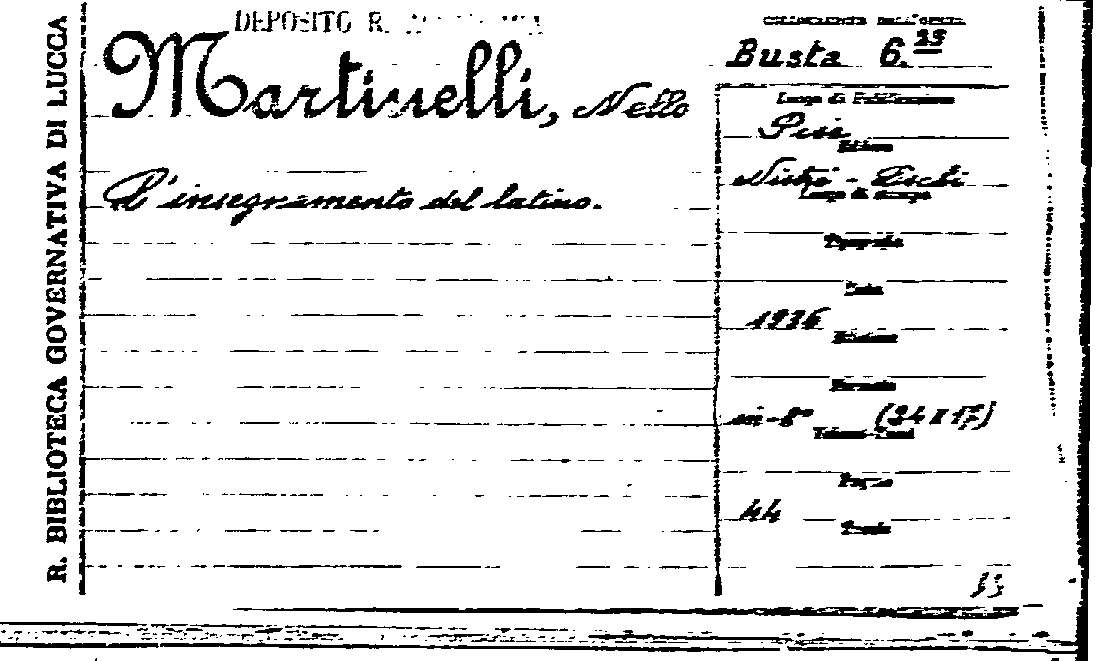 DEPOSITO R.
COLLOCAZIONE DELL'OPERA
Busta 6.23
Martinelli, Nello
Luogo di Pubblicazione
Pisa
Editore
Nistri - Lischi
Luogo di stampa
L'insegnamento del latino.
Tipografia
Data
1936
Edizione
Formato
in-8° (24 x 17)
Volumi-Tomi
Pagine
44
R. BIBLIOTECA GOVERNATIVA DI LUCCA